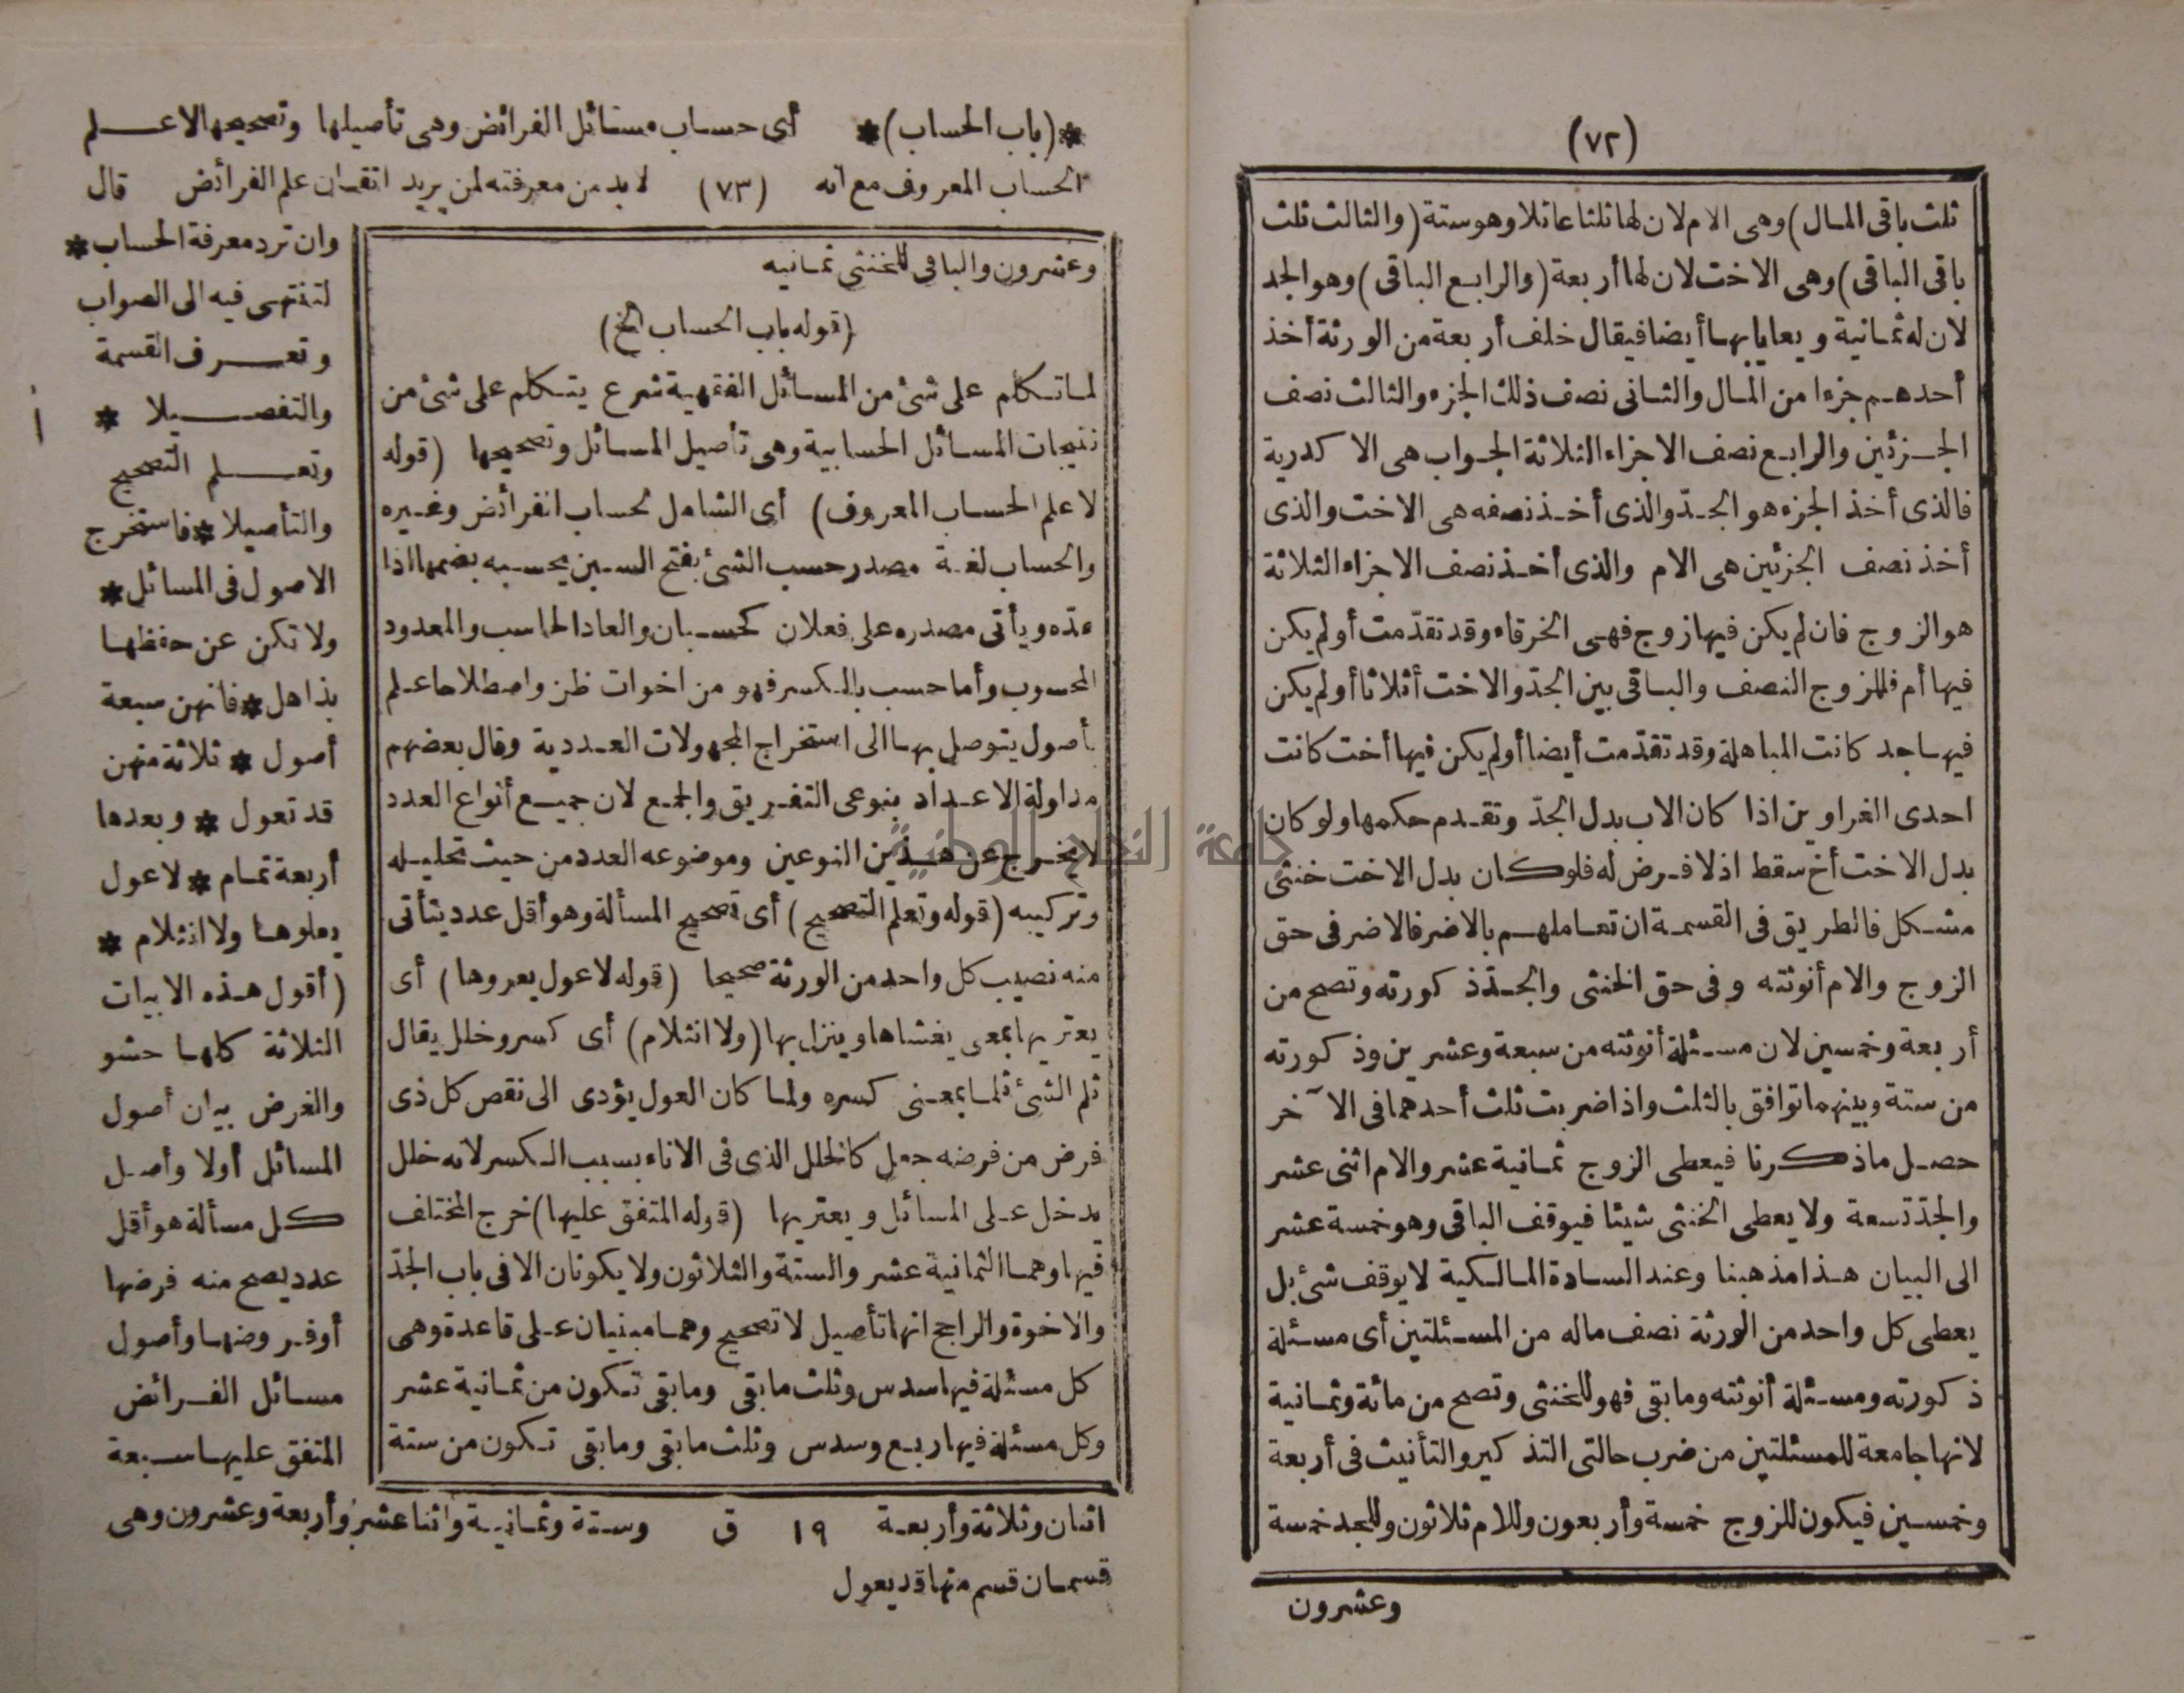 (٧٢)
ثلث باقى المال) وهى الام لان لها ثلثا عائلا وهو ستة (والثالث ثلث
باقى الباقى) وهى الاخت لان لها أربعة (والرابع الباقى) وهو الجد
لان له ثمانية ويعايا بها أيضا فيقال خلف أربعة من الورثة أخذ
أحدهم جزءا من المال والثانى نصف ذلك الجزء والثالث نصف
الجزئين والرابع نصف الاجزاء الثلاثة الجواب هى الاكدرية
فالذى أخذ الجزء هو الجدّ والذى أخذ نصفه هى الاخت والذى
أخذ نصف الجزئين هى الام والذى أخذ نصف الاجزاء الثلاثة
هو الزوج فان لم يكن فيها زوج فهى الخرقاء وقد تقدّمت أو لم يكن
فيها أم فللزوج النصف والباقى بين الجدّ والاخت أثلاثا أو لم يكن
فيها جد كانت المباهلة وقد تقدّمت أيضا أو لم يكن فيها أخت كانت
احدى الغراوين اذا كان الاب بدل الجدّ وتقدم حكمها ولو كان
بدل الاخت أخ سقط اذ لا فرض له فلو كان بدل الاخت خنثى
مشكل فالطريق فى القسمة ان تعاملهم بالاضر فالاضر فى حق
الزوج والام أنوثته وفى حق الخنثى والجدّ ذكورته وتصح من
أربعة وخمسين لان مسئلة أنوثته من سبعة وعشرين وذكورته
من ستة وبينهما توافق بالثلث واذا ضربت ثلث أحدهما فى الآخر
حصل ماذكرنا فيعطى الزوج ثمانية عشر والام اثنى عشر
والجدّ تسعة ولا يعطى الخنثى شيئا فيوقف الباقى وهو خمسة عشر
الى البيان هذا مذهبنا وعند السادة المالكية لا يوقف شئ بل
يعطى كل واحد من الورثة نصف ماله من المسئلتين أى مسئلة
ذكورته ومسئلة أنوثته وما بقى فهو للخنثى وتصح من مائة وثمانية
لانها جامعة للمسئلتين من ضرب حالتى التذكير والتأنيث فى أربعة
وخمسين فيكون للزوج خمسة وأربعون وللام ثلاثون وللجد خمسة
وعشرون
*(باب الحساب)* أى حساب مسائل الفرائض وهى تأصيلها وتصحيحها لا علم
الحساب المعروف مع انه (٧٣) لابد من معرفته لمن يريد اتقان علم الفرائض قال
وان ترد معرفة الحساب *
لتنتهى فيه الى الصواب
وتعرف القسمة
والتفصيلا *
وتعلم التصحيح
والتأصيلا * فاستخرج
الاصول فى المسائل *
ولا تكن عن حفظها
بذاهل * فانهن سبعة
أصول * ثلاثة منهن
قد تعول * وبعدها
أربعة تمام * لا عول
يعلوها ولا انثلام *
(أقول هذه الابيات
الثلاثة كلها حشو
والغرض بيان أصول
المسائل أولا وأصل
كل مسألة هو أقل
عدد يصح منه فرضها
أو فروضها وأصول
مسائل الفرائض
المتفق عليها سبعة
وعشرون والباقى للخنثى ثمانيه
(قوله باب الحساب الخ)
لما تكلم على شئ من المسائل الفقهية شرع يتكلم على شئ من
نتيجات المسائل الحسابية وهى تأصيل المسائل وتصحيحها (قوله
لا علم الحساب المعروف) أى الشامل لحساب الفرائض وغيره
والحساب لغة مصدر حسب الشئ بفتح السين يحسبه بضمها اذا
عدّه ويأتى مصدره على فعلان كحسبان والعاد الحاسب والمعدود
المحسوب وأما حسب بالكسر فهو من اخوات ظن واصطلاحا علم
بأصول يتوصل بها الى استخراج المجهولات العددية وقال بعضهم
مزاولة الاعداد بنوعى التفريق والجمع لان جميع أنواع العدد
لا يخرج عن هذين النوعين وموضوعه العدد من حيث تحليله
وتركيبه (قوله وتعلم التصحيح) أى تصحيح المسألة وهو أقل عدد يتأتى
منه نصيب كل واحد من الورثة صحيحا (قوله لا عول يعروها) أى
يعتريها بمعى يغشاها وينزل بها (ولا انثلام) أى كسر وخلل يقال
ثلم الشئ ثلما بمعنى كسره ولما كان العول يؤدى الى نقص كل ذى
فرض من فرضه جعل كالخلل الذى فى الاناء بسبب الكسر لانه خلل
يدخل على المسائل ويعتريها (قوله المتفق عليها) خرج المختلف
فيها وهما الثمانية عشر والستة والثلاثون ولا يكونان الا فى باب الجدّ
والاخوة والراجح انها تأصيل لا تصحيح وهما مبنيان على قاعدة وهى
كل مسئلة فيها سدس وثلث ما بقى وما بقى تكون من ثمانية عشر
وكل مسئلة فيها ربع وسدس وثلث ما بقى وما بقى تكون من ستة
اثنان وثلاثة وأربعة ١٩ ق وستة وثمانية واثنا عشر وأربعة وعشرون وهى
قسمان قسم منها قد يعول
جامعة النجاح الوطنية